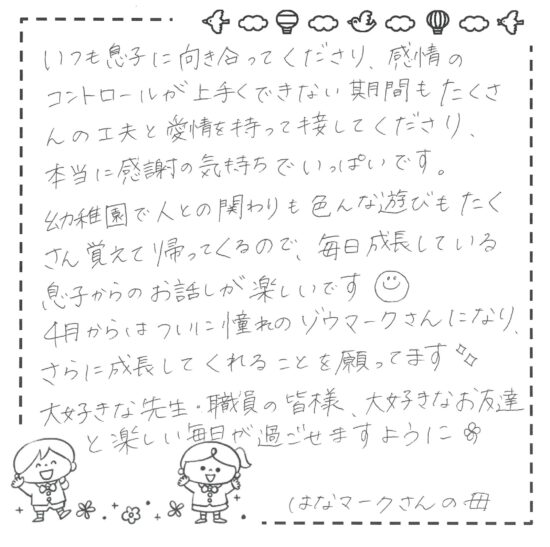 いつも息子に向き合ってくださり、感情の
コントロールが上手くできない期間もたくさ
んの工夫と愛情を持って接してくださり、
本当に感謝の気持ちでいっぱいです。
幼稚園で人との関わりも色んな遊びもたく
さん覚えて帰ってくるので、毎日成長している
息子からのお話しが楽しいです
4月からはついに憧れのゾウマークさんになり、
さらに成長してくれることを願ってます
大好きな先生・職員の皆様、大好きなお友達
と楽しい毎日が過ごせますように
はなマークさんの母